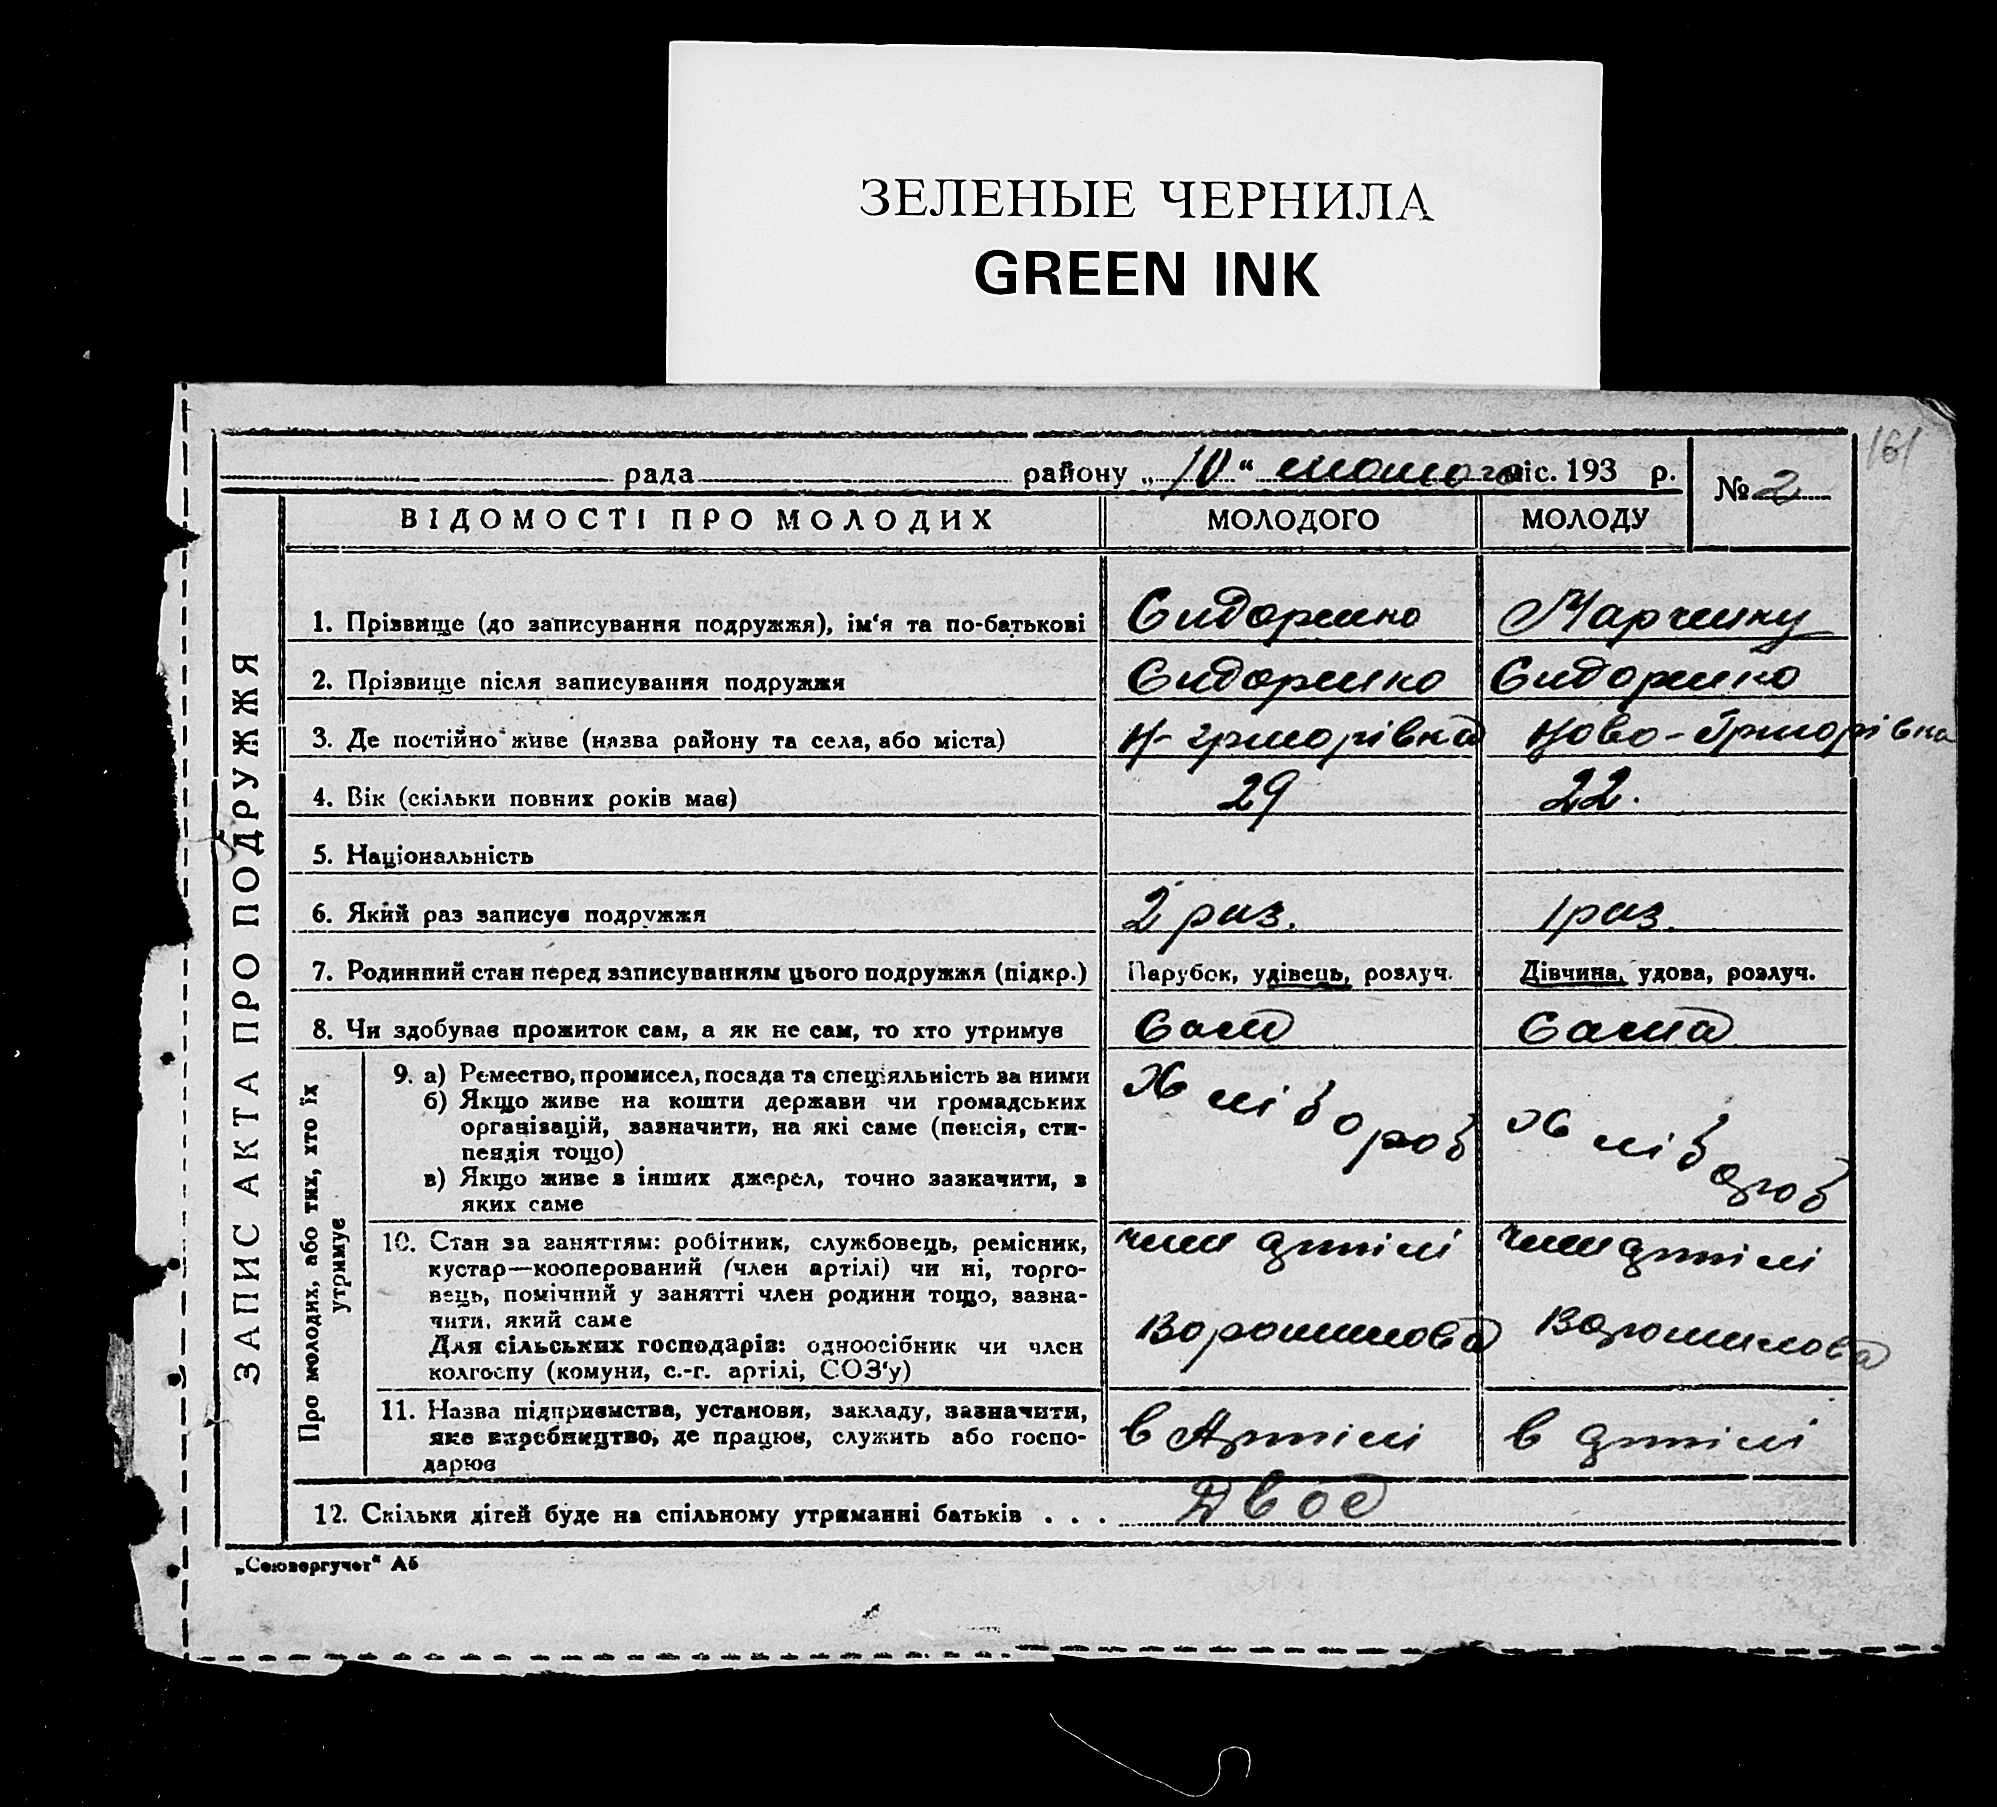 ЗЕЛЕНЫЕ ЧЕРНИЛА
GREEN INK
161
рада району „10“ лютого міс. 193 р. № 2
ВІДОМОСТІ ПРО МОЛОДИХ МОЛОДОГО МОЛОДУ
ЗАПИС АКТА ПРО ПОДРУЖЖЯ
1. Прізвище (до записування подружжя), ім‘я та по-батькові Сидоренко Марченку
2. Прізвище після записування подружжя Сидоренко Сидоренко
3. Де постійно живе (назва району та села, або міста) Н-Григорівка Ново-Григорівка
4. Вік (скільки повних років має) 29 22.
5. Національність
6. Який раз записує подружжя 2 раз. 1 раз.
7. Родинний стан перед записуванням цього подружжя (підкр.) Парубок, удівець, розлуч. Дівчина, удова, розлуч.
8. Чи здобуває прожиток сам, а як не сам, то хто утримує Сам Сама
Про молодих, або тих, хто їх
утримує
9. а) Ремество, промисел, посада та спеціяльність за ними Хлібороб Хлібороб
б) Якщо живе на кошти держави чи громадських
організацій, зазначити, на які саме (пенсія, сти-
пендія тощо)
в) Якщо живе з інших джерел, точно зазначити, з
яких саме
10. Стан за заняттям: робітник, службовець, ремісник, член артілі член артілі
кустар—кооперований (член артілі) чи ні, торго-
вець, помічний у занятті член родини тощо, зазна-
чити, який саме Ворошилова Ворошилова
Для сільських господарів: одноосібник чи член
колгоспу (комуни, с.-г. артілі, СОЗ‘у)
11. Назва підприємства, установи, закладу, зазначити, в Артілі в артілі
яке виробництво, де працює, служить або госпо-
дарює
12. Скільки дітей буде на спільному утриманні батьків . . . Двоє
„Союзоргучет“ А5